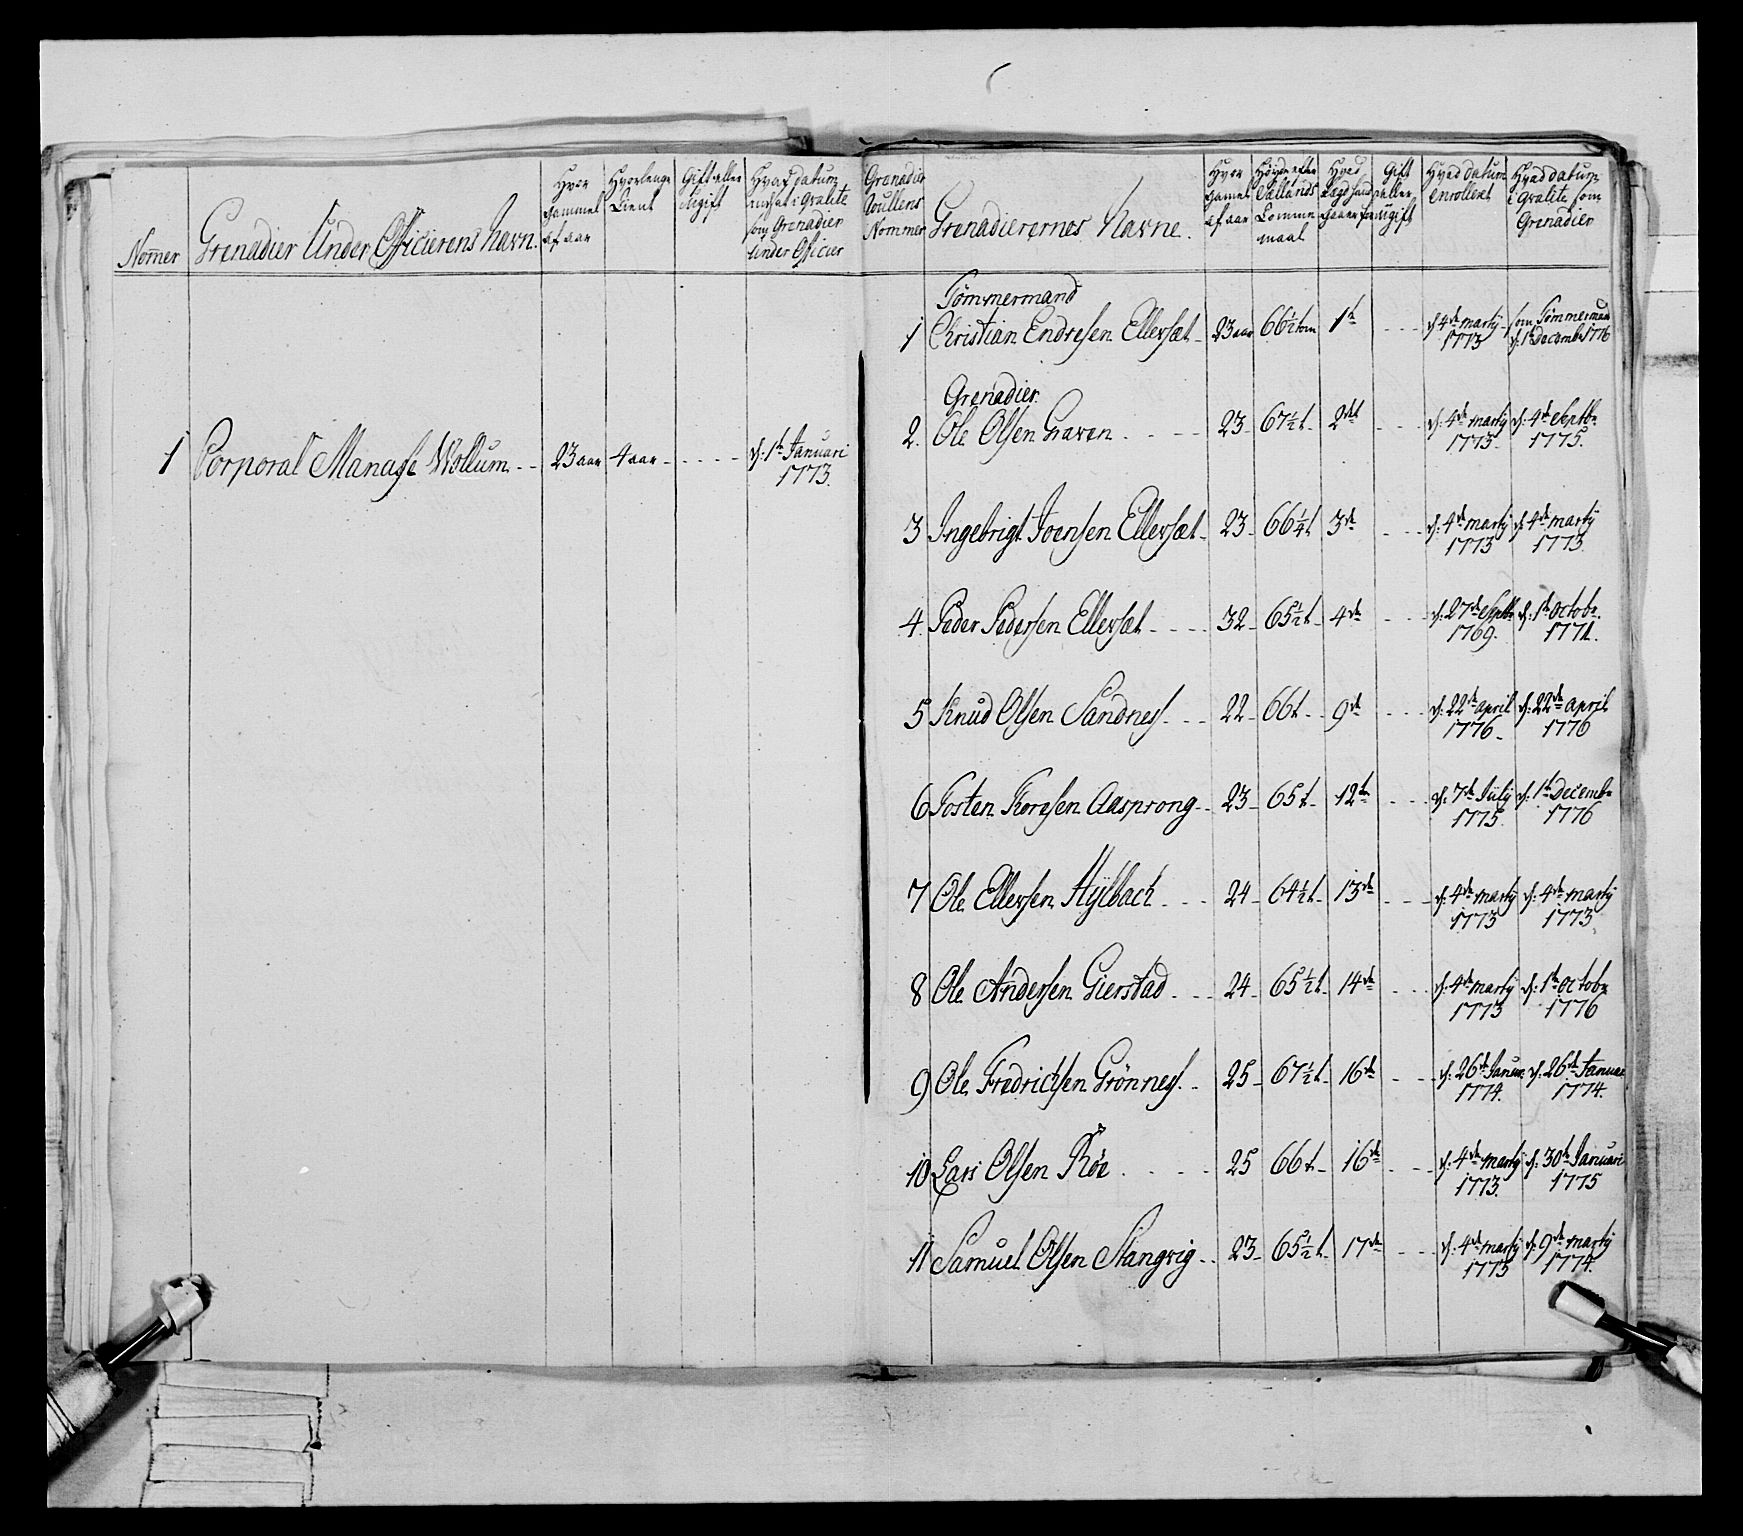 Nomer
Grenadier Under Officierens Navn.
Hvor
gammel
af aar
Hvorlenge
Tient
Gift eller
Ugift
Hvad datum
i Qvalite
som Grenadier
Under Officier
1 Corporal Manasse Wollum 23 aar 4 aar d: 1te Januari
1773.
Grenadier
Roullens
Nommer
Grenadierernes Navne.
Hvor
gamel
af aar
Høyde efter
Lomme
maal
Hvad
Gift
eller
ugift
Hvad datum
enrollert
Hvad datum
i Qvalite som
Grenadier
Tømmermand
1 Christian Endresen Ellevset 23 aar 66½ tom 1te d 4de marty som Tømmermand
1773 d: 1te Decembr 1776
Grenadier.
2. Ole Olsen Graven 23 67½ t 2det d: 4de marty d: 4de Septbr
1773 1775.
3 Ingebrigt Joensen Ellevset 23 66¼ t 3de d: 4de marty d: 4de marty
1773 1773.
4. Peder Pedersen Ellevset 32 65½ t 4de d: 27de Septbr d: 1te Octobr.
1769. 1771.
5 Knud Olsen Sandnes 22 66 t 9de d: 22de april d: 22de april
1776 1776
6 Tosten Toresen Aasprong 23 65 t 12te d: 7de July d: 1te Decembr
1775. 1776
7 Ole Ellevsen Hylbach 24 64½ t 13de d: 4de marty d: 4de marty
1773 1773
8 Ole Andersen Gierstad 24 65½ t 14de d: 4de marty d: 1te Octobr
1773 1776
9 Ole Fredrichsen Grønnes 25 67½ t 16de d: 26de Januar d: 26de Januar
1774. 1774.
10 Lars Olsen Røe 25 66 t 16de d: 4de marty d: 30te Januari
1773. 1775
11 Samuel Olsen Stangvig 23 65½ t 17de d: 4de marty d: 9de marty
1773 1774.